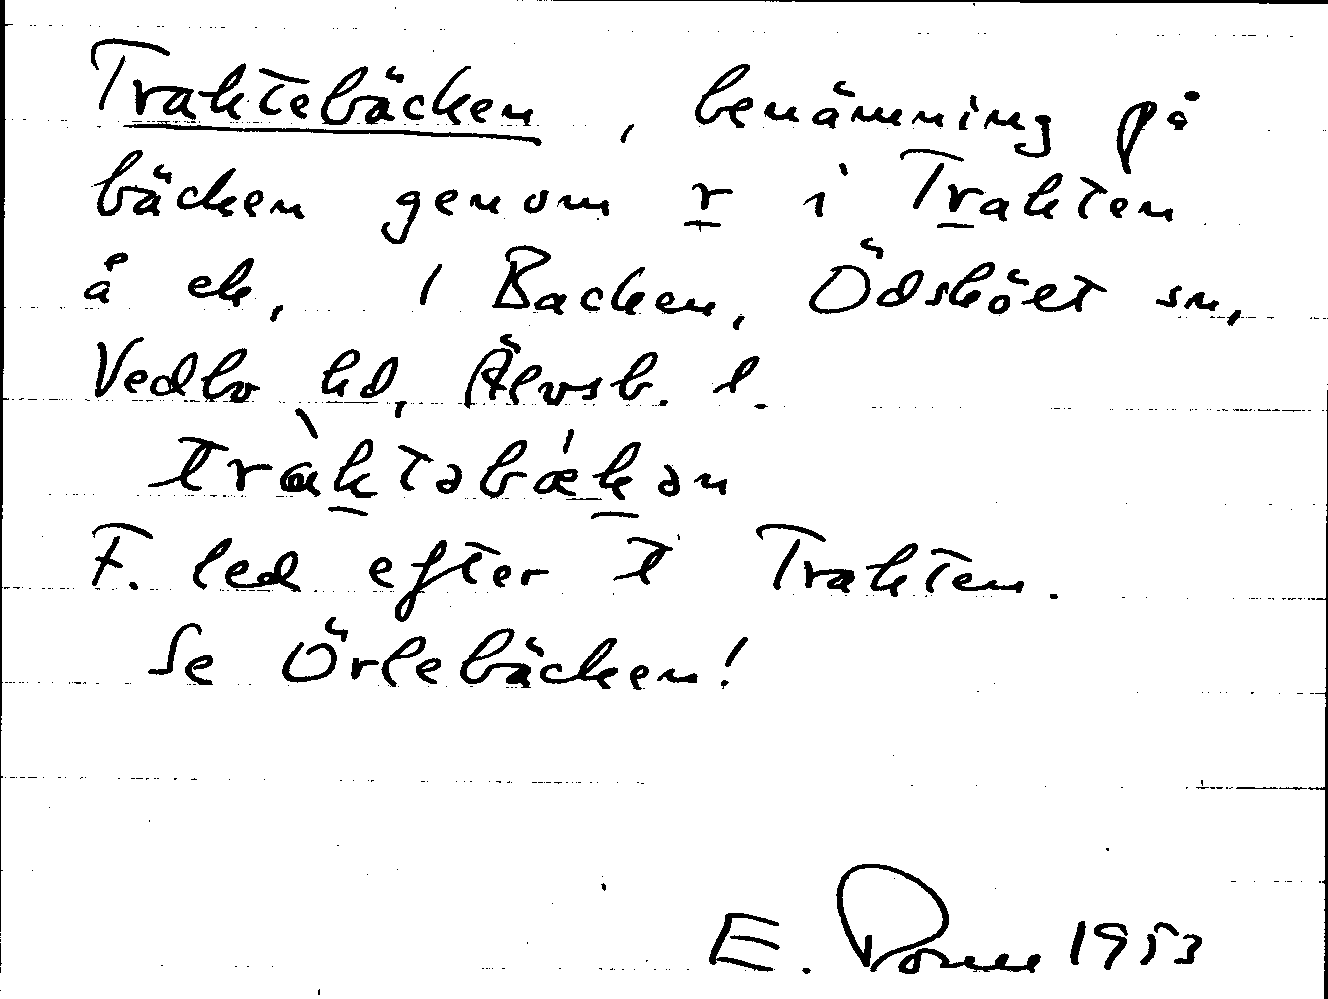 Traktebäcken, benämning på
bäcken genom r i Trakten
å ek, 1 Backen, Ödskölt sn,
Vedbo hd, Älvsb. l.
tràktəbækən
F. led efter t Trakten.
Se Örlebäcken!
E. 1953